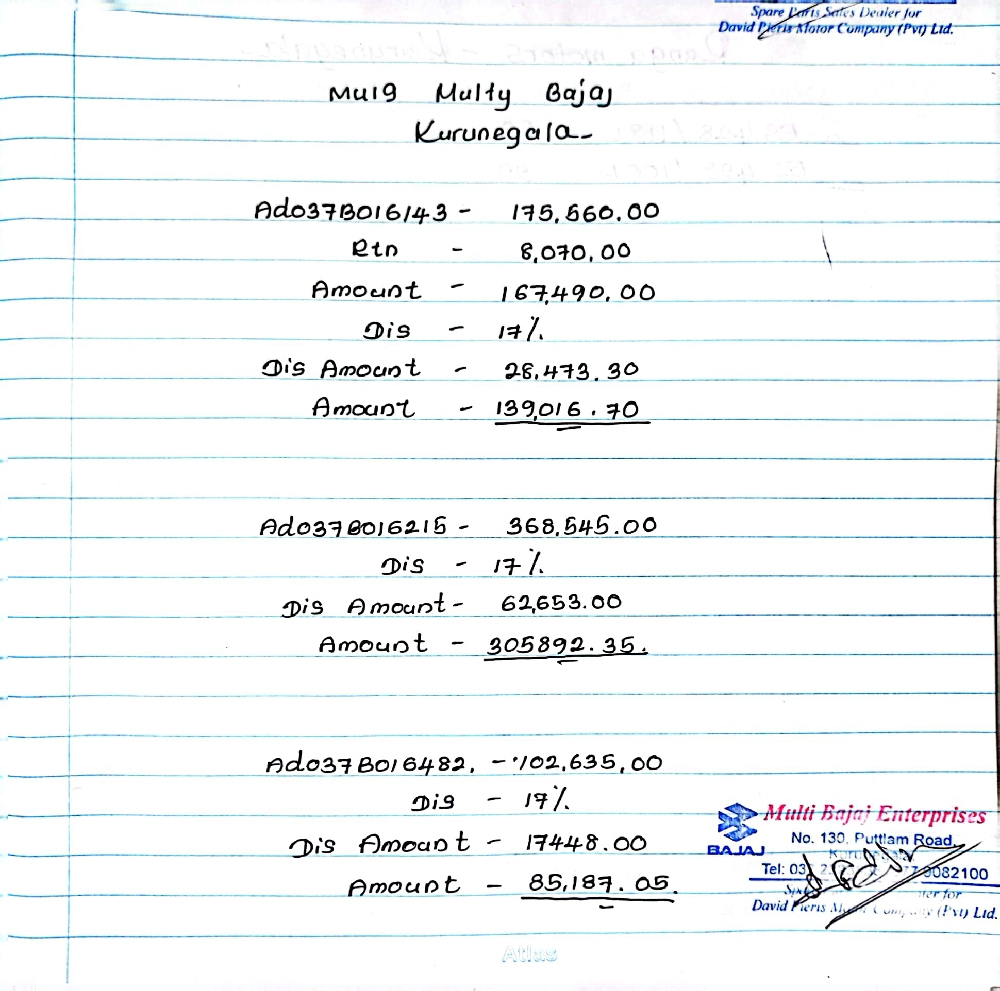 Spare Parts Sales Dealer for
David Pieris Motor Company (Pvt) Ltd.
Mu19 Multy Bajaj
Kurunegala-
Ado37B016143 - 175,560.00
Rtn - 8,070.00
Amount - 167,490.00
Dis - 17%
Dis Amount - 28,473.30
Amount - 139,016.70
Ado37B016215 - 368,545.00
Dis - 17%
Dis Amount - 62,653.00
Amount - 305892.35.
Ado37B016482, - 102,635,00
Dis - 17%
Dis Amount - 17448.00
Amount - 85,187.05.
Multi Bajaj Enterprises
BAJAJ
No. 130, Puttlam Road,
Tel: 03 9082100
David Pieris (Pvt) Ltd.
Atlas